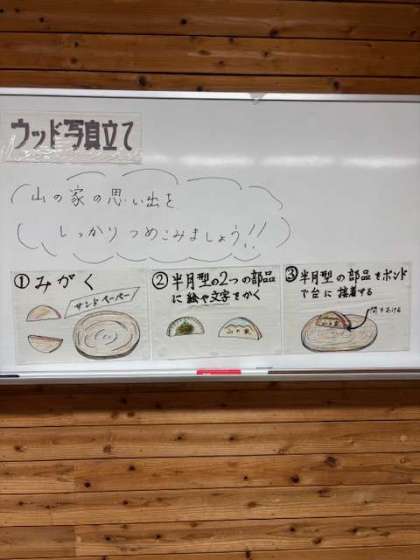 ウッド写真立て
山の家の思い出を
しっかりつめこみましょう!!
①みがく
サンドペーパー
②半月型の2つの部品
に絵や文字をかく
山の家
③半月型の部品をボンド
で台に接着する
間をあける